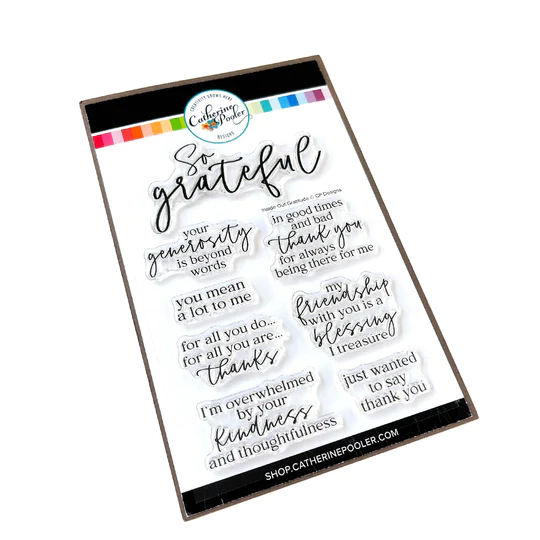 CREATIVITY GROWS HERE
Catherine
Pooler
DESIGNS
So
grateful
Inside Out Gratitude © CP Designs
your
generosity
is beyond
words
in good times
and bad
thank you
for always
being there for me
you mean
a lot to me
my
friendship
with you is a
blessing
I treasure
for all you do...
for all you are...
thanks
just wanted
to say
thank you
I'm overwhelmed
by your
kindness
and thoughtfulness
SHOP.CATHERINEPOOLER.COM